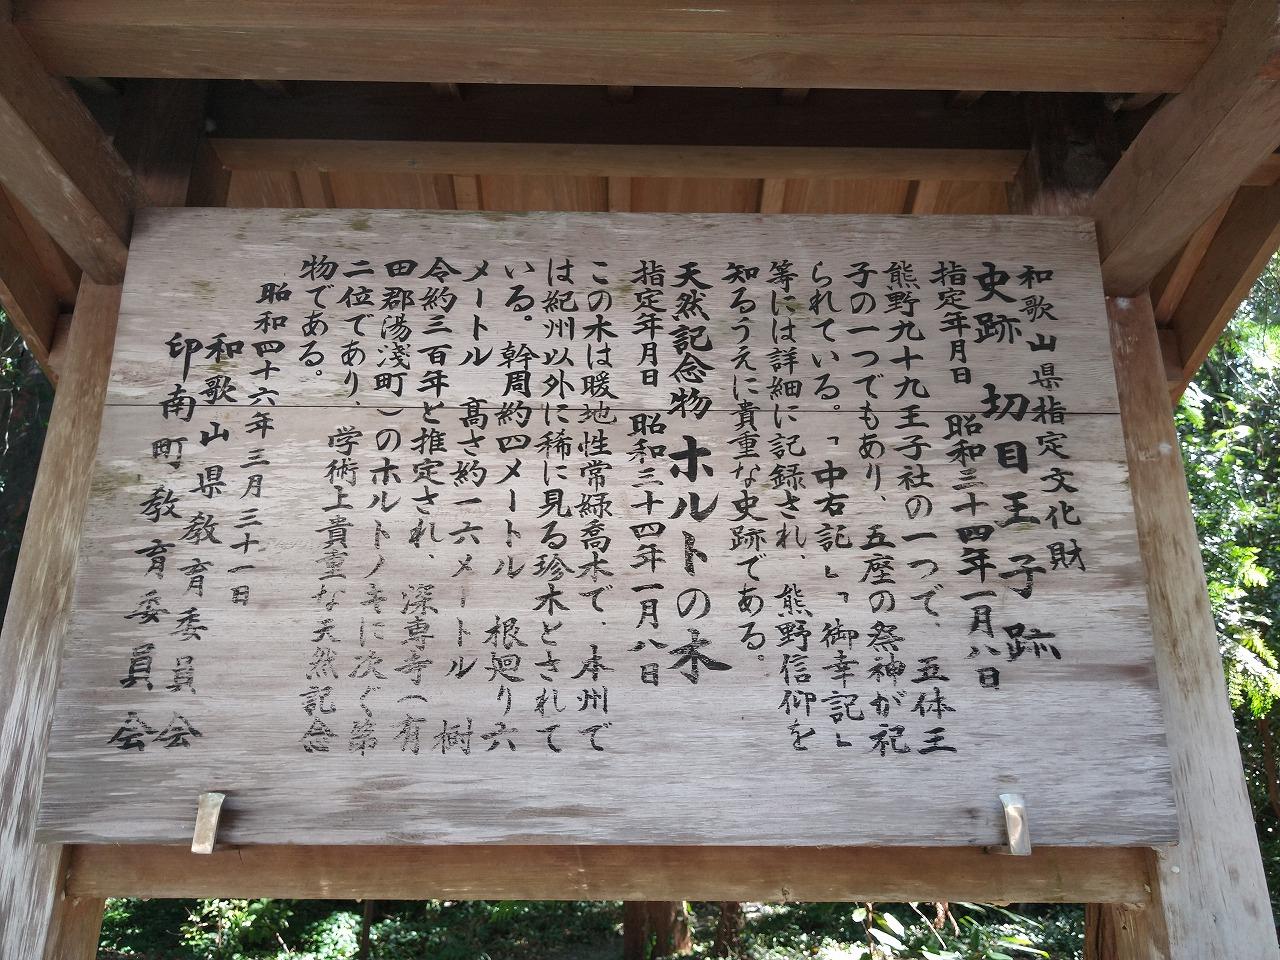 和歌山県指定文化財
史跡 切目王子跡
指定年月日 昭和三十四年一月八日
熊野九十九王子社の一つで、五体王
子の一つでもあり、五座の祭神が祀
られている。「中右記」「御幸記」
等には詳細に記録され、熊野信仰を
知るうえに貴重な史跡である。
天然記念物 ホルトの木
指定年月日 昭和三十四年一月八日
この木は暖地性常緑喬木で、本州で
は紀州以外に稀に見る珍木とされて
いる。幹周約四メートル 根廻り六
メートル 高さ約一六メートル 樹
令約三百年と推定され、深専寺(有
田郡湯淺町)のホルトノキに次ぐ第
二位であり、学術上貴重な天然記念
物である。
昭和四十六年三月三十一日
和歌山県教育委員会
印南町教育委員会